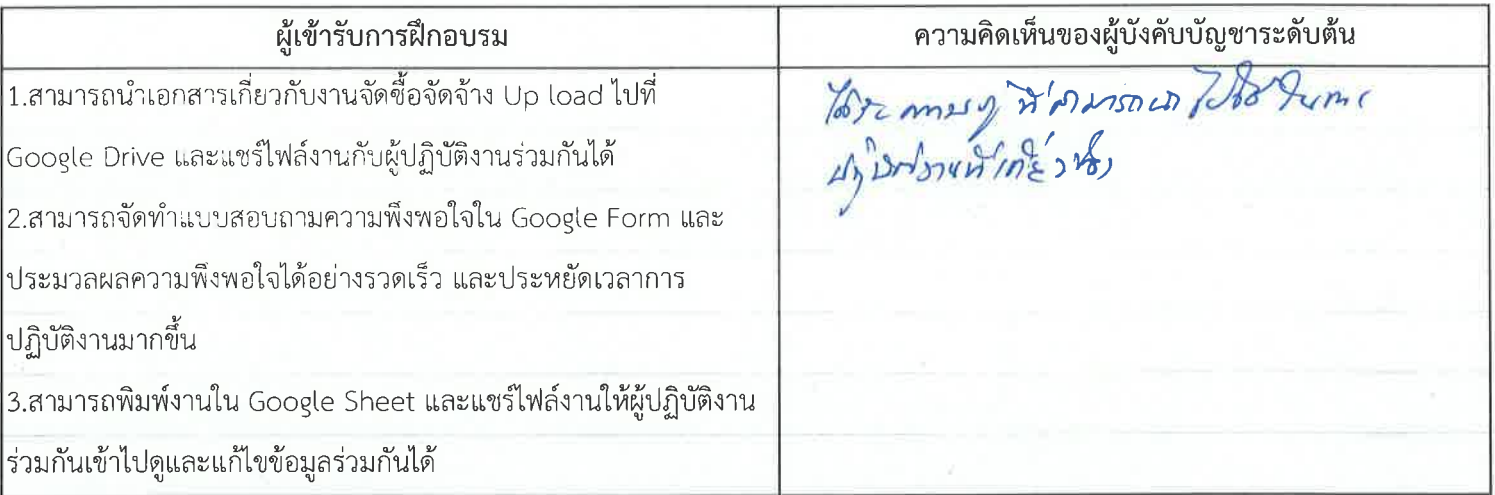 ผู้เข้ารับการฝึกอบรม
ความคิดเห็นของผู้บังคับบัญชาระดับต้น
1.สามารถนำเอกสารเกี่ยวกับงานจัดซื้อจัดจ้าง Up load ไปที่
Google Drive และแชร์ไฟล์งานกับผู้ปฏิบัติงานร่วมกันได้
2.สามารถจัดทำแบบสอบถามความพึงพอใจใน Google Form และ
ประมวลผลความพึงพอใจได้อย่างรวดเร็ว และประหยัดเวลาการ
ปฏิบัติงานมากขึ้น
3.สามารถพิมพ์งานใน Google Sheet และแชร์ไฟล์งานให้ผู้ปฏิบัติงาน
ร่วมกันเข้าไปดูและแก้ไขข้อมูลร่วมกันได้
ที่สามารถนำไปใช้ในการ
ปฏิบัติงานที่เกี่ยวข้อง